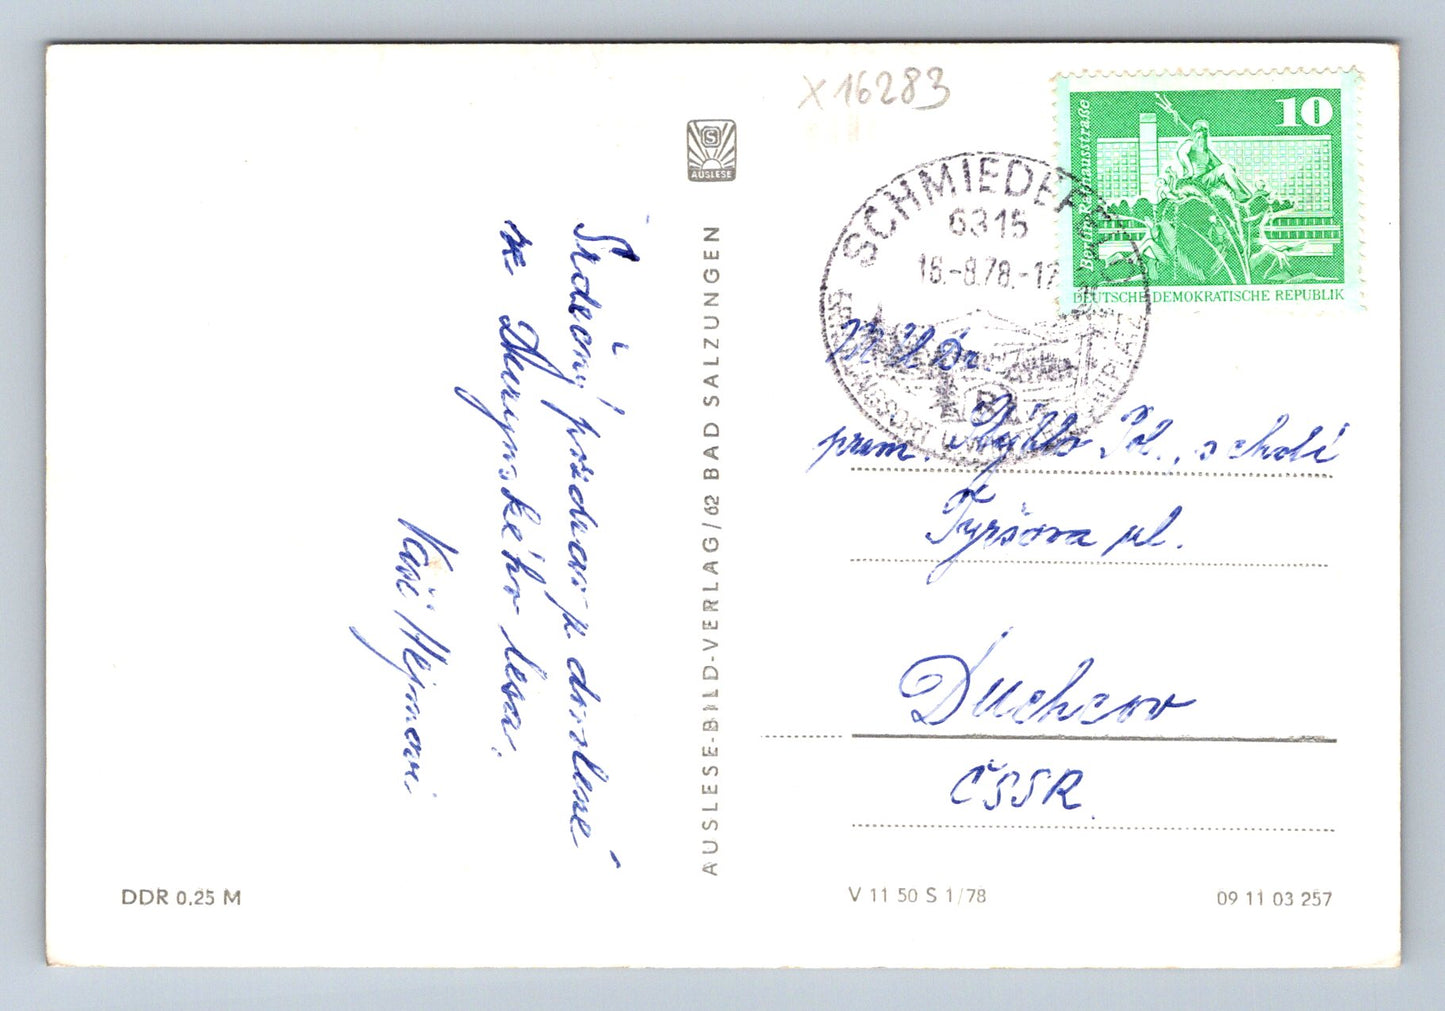 X 16283
S
AUSLESE
10
Berlin, Rathausstraße
DEUTSCHE DEMOKRATISCHE REPUBLIK
SCHMIEDEFELD
6315
16.-8.78.-17
Srdečný pozdrav z dovolené
z Durynského lesa.
Vaši Hejmovi
AUSLESE-BILD-VERLAG/62 BAD SALZUNGEN
Dr.
prom. Pol., schdí
Tyršova ul.
Duchcov
ČSSR
DDR 0,25 M
V 11 50 S 1/78
09 11 03 257